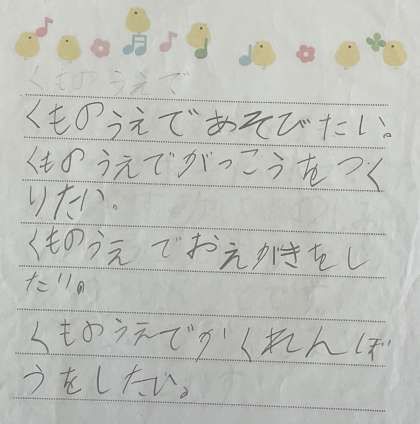 くものうえで
くものうえであそびたい。
くものうえでがっこうをつく
りたい。
くものうえでおえがきをし
たい。
くものうえでかくれんぼ
うをしたい。